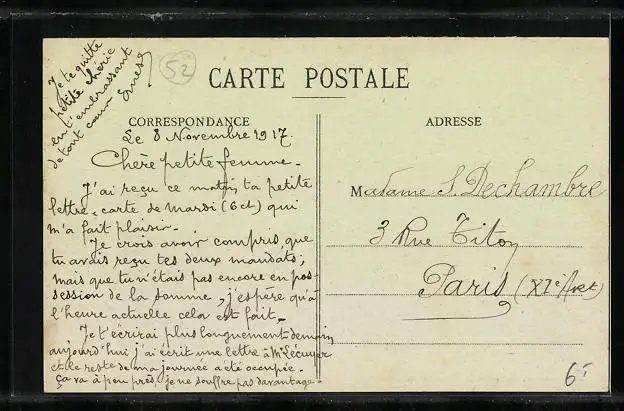 Je te quitte
petite chérie
en t'embrassant
de tout cœur
Ernest
52
CARTE POSTALE
CORRESPONDANCE
ADRESSE
Le 8 Novembre 1917.
Chère petite femme.
J'ai reçu ce matin ta petite
lettre-carte de mardi (6 ct) qui
m'a fait plaisir.
Je crois avoir compris, que
tu avais reçu tes deux mandats,
mais que tu n'étais pas encore en pos-
session de la somme, j'espère qu'à
l'heure actuelle cela est fait.
Je t'écrirai plus longuement demain
aujourd'hui j'ai écrit une lettre à Mr Lécuyer
et le reste de ma journée a été occupée.
Ça va à peu près, je ne souffre pas davantage.
Madame S. Dechambre
3 Rue Titon
Paris (XIe Arrt)
6